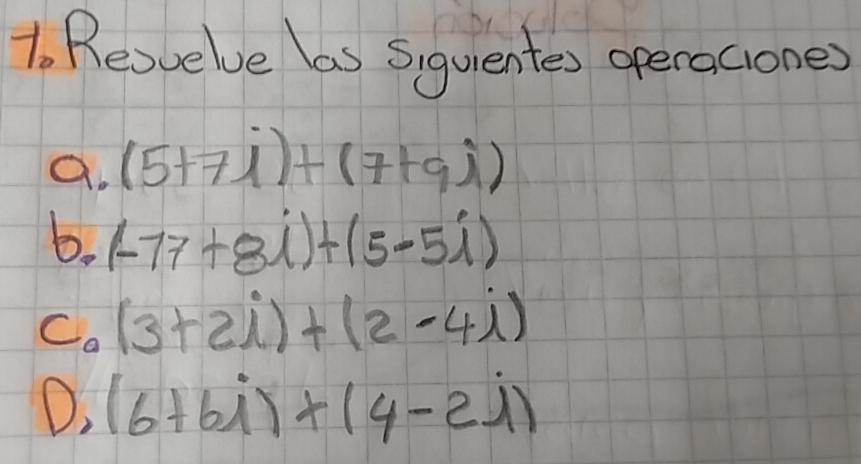 1. Resuelve las siguientes operaciones
a. (5+7i)+(7+9i)
b. (-77+8i)+(5-5i)
c. (3+2i)+(2-4i)
D. (6+6i)+(4-2i)